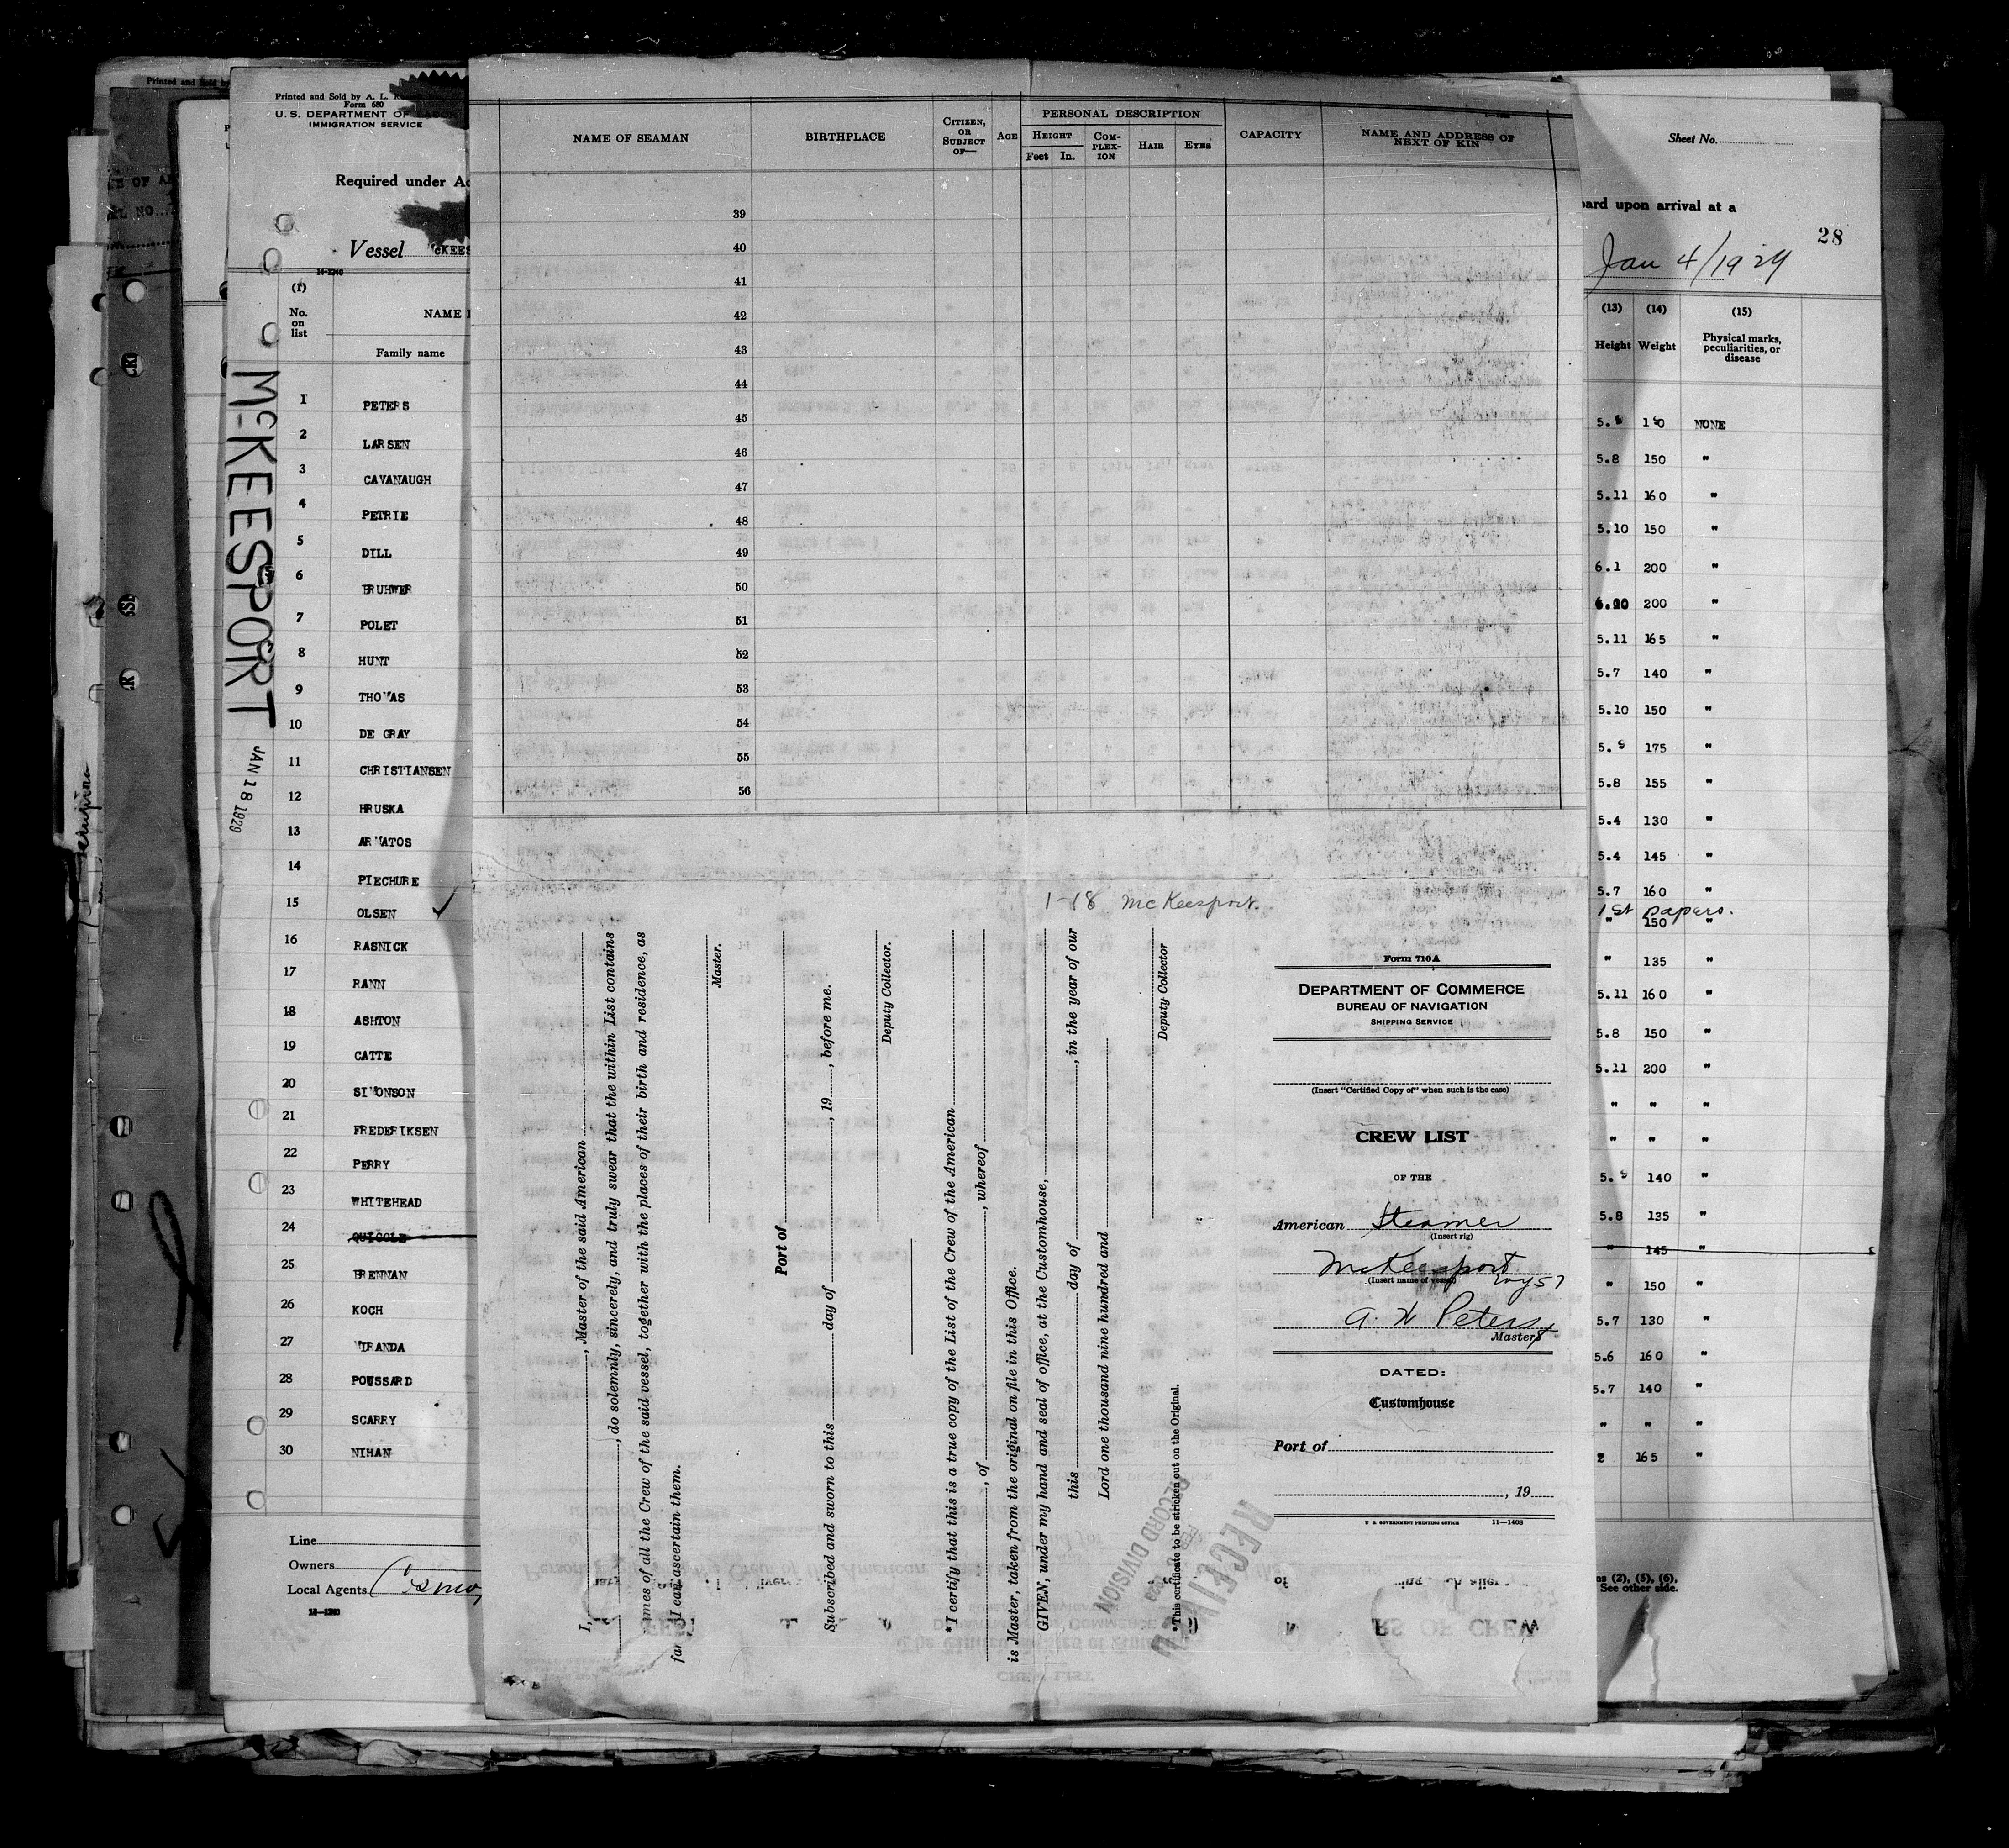 Printed and Sold by A. L.
Form 680
U. S. DEPARTMENT OF LABOR
IMMIGRATION SERVICE
Required under Ac
Vessel McKEES
14-1240
(1)
No.
on
list
NAME I
Family name
McKEESPORT
JAN 18 1929
1 PETERS
2 LARSEN
3 CAVANAUGH
4 PETRIE
5 DILL
6 BRUHWER
7 POLET
8 HUNT
9 THOMAS
10 DE GRAY
11 CHRISTIANSEN
12 HRUSKA
13 ARMATOS
14 PIECHURE
15 OLSEN ✓
16 RASNICK
17 RANN
18 ASHTON
19 CATTE
20 SIMONSON
21 FREDERIKSEN
22 PERRY
23 WHITEHEAD
24 QUIGGLE
25 BRENNAN
26 KOCH
27 MIRANDA
28 POUSSARD
29 SCARRY
30 NIHAN
Line
Owners
Local Agents Cosmo
14-1240
NAME OF SEAMAN
BIRTHPLACE
CITIZEN, OR SUBJECT OF—
AGE
PERSONAL DESCRIPTION
HEIGHT
Feet In.
COM-PLEX-ION
HAIR
EYES
CAPACITY
NAME AND ADDRESS OF NEXT OF KIN
39
40
41
42
43
44
45
46
47
48
49
50
51
52
53
54
55
56
1-18 McKeesport.
I, , Master of the said American
, do solemnly, sincerely, and truly swear that the within List contains
names of all the Crew of the said vessel, together with the places of their birth and residence, as
far as I can ascertain them.
Master.
Port of
Subscribed and sworn to this day of , 19 , before me.
Deputy Collector.
*I certify that this is a true copy of the List of the Crew of the American
, of , whereof
is Master, taken from the original on file in this Office.
GIVEN, under my hand and seal of office, at the Customhouse,
this day of , in the year of our
Lord one thousand nine hundred and
Deputy Collector
*This certificate to be stricken out on the Original.
RECEIVED
RECORD DIVISION
Form 710A
DEPARTMENT OF COMMERCE
BUREAU OF NAVIGATION
SHIPPING SERVICE
(Insert "Certified Copy of" when such is the case)
CREW LIST
OF THE
American Steamer
(Insert rig)
McKeesport voy 57
(Insert name of vessel)
A. H Peters
Master
DATED:
Customhouse
Port of
, 19
U. S. GOVERNMENT PRINTING OFFICE 11—1408
Sheet No.
oard upon arrival at a
28
Jan 4/1929
(13) (14) (15)
Height Weight Physical marks, peculiarities, or disease
NONE
5.8 150 "
5.11 160 "
5.10 150 "
6.1 200 "
200 "
5.11 165 "
5.7 140 "
5.10 150 "
5.9 175 "
5.8 155 "
5.4 130 "
5.4 145 "
5.7 160 "
1st papers.
" 150 "
" 135 "
5.11 160 "
5.8 150 "
5.11 200 "
" " "
" " "
5.9 140 "
5.8 135 "
" 145 "
" 150 "
5.7 130 "
5.6 160 "
5.7 140 "
" " "
2 165 "
ns (2), (5), (6),
See other side.